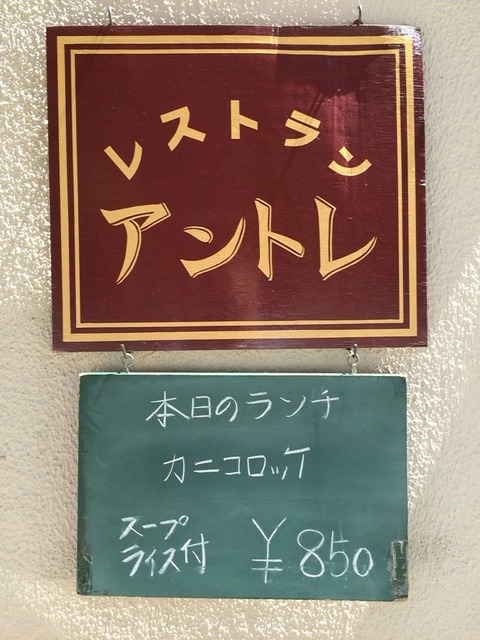 レストラン
アントレ
本日のランチ
カニコロッケ
スープ
ライス付 ¥850